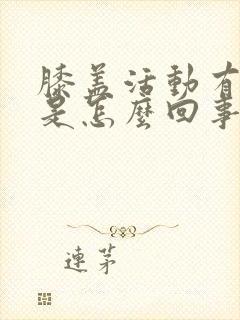 膝盖活動有
是怎麼回事
連茅